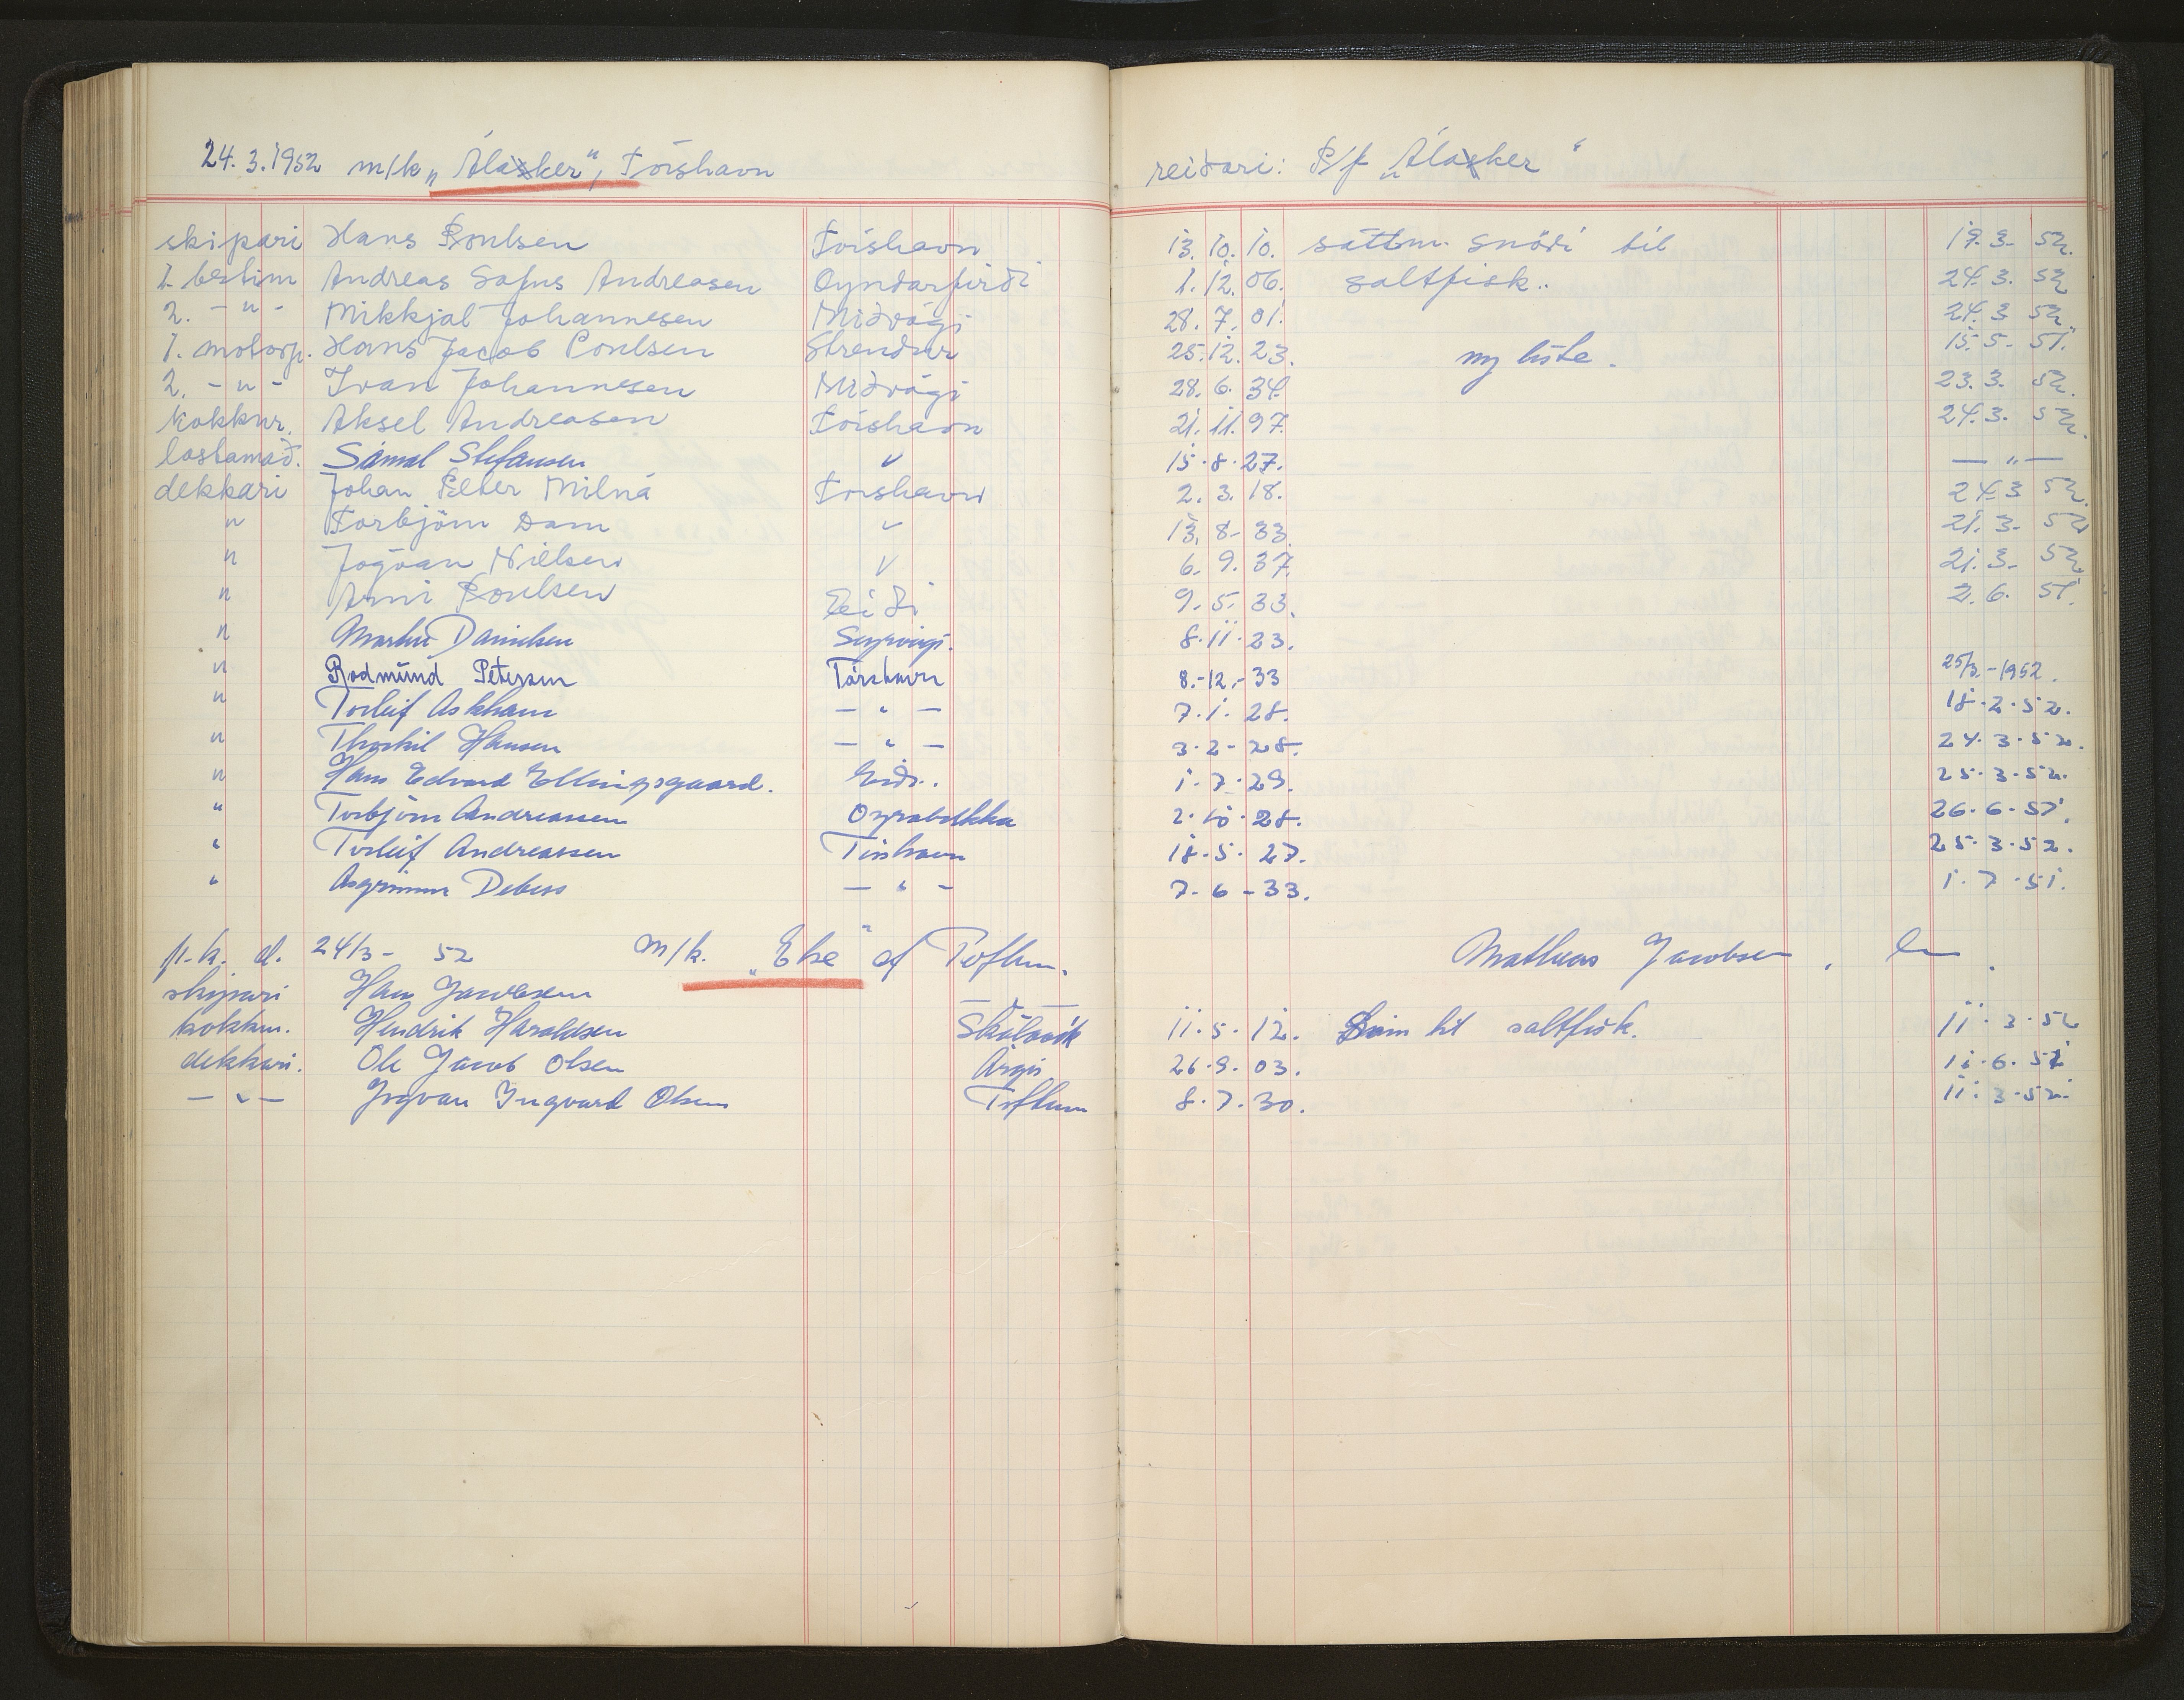 24.3.1952 m/k „Álasker", Tórshavn reiðari: P/f „Álasker"
skipari Hans Poulsen Tórshavn 13. 10. 10. sáttm. snöri til 19. 3. 52.
1. bestim Andreas Safus Andreasen Oyndarfirði 1. 12. 06. saltfisk.. 24. 3. 52
2. - " - Mikkjal Johannesen Miðvági 28. 7. 01. 24. 3 52
1. motorp. Hans Jacob Poulsen Strendur 25. 12. 23. ny liste. 15. 5. 51.
2. - " - Ivan Johannesen Miðvági 28. 6. 34. 23. 3. 52.
Kokkur. Aksel Andreasen Tórshavn 21. 11. 97. 24. 3. 52.
lastamað. Sámal Stefansen " 15. 8. 27. — " —
dekkari Johan Peter Milná Tórshavn 2. 3. 18. 24. 3 52.
" Torbjörn Dam " 13. 8- 33. 21. 3. 52
" Jógvan Nielsen " 6. 9. 37. 21. 3. 52
" Arni Poulsen Eiði 9. 5. 33. 2. 6. 51.
" Martin Danielsen 8. 11. 23.
" Rodmund Petersen Tórshavn 8.-12.-33 25/3-1952.
" Torleif Askham — " — 7. 1. 28. 18. 2. 52.
" Thorkil Hansen — " — 3. 2 - 28. 24. 3. 52.
" Hans Edvard Ellingsgaard. Eiði. 1. 7. 29. 25. 3. 52.
" Torbjörn Andreassen Oyrabakka 2. 10. 28. 26. 6. 51.
" Torleif Andreassen Tórshavn 18. 5. 27. 25. 3. 52.
" Asgrimur Debess — " — 7. 6 - 33. 1. 7. 51.
24/3- 52 m/k. „Else" af Toftum. Mathias Jacobsen,
skipari Hans Jacobsen
kokkur. Hendrik Haraldsen Skálavík 11. 5. 12. til saltfisk. 11. 3. 52
dekkari. Ole Jacob Olsen Argir 26. 9. 03. 11. 6. 51
— " — Jógvan Ingvard Olsen Toftum 8. 7. 30. 11. 3. 52.